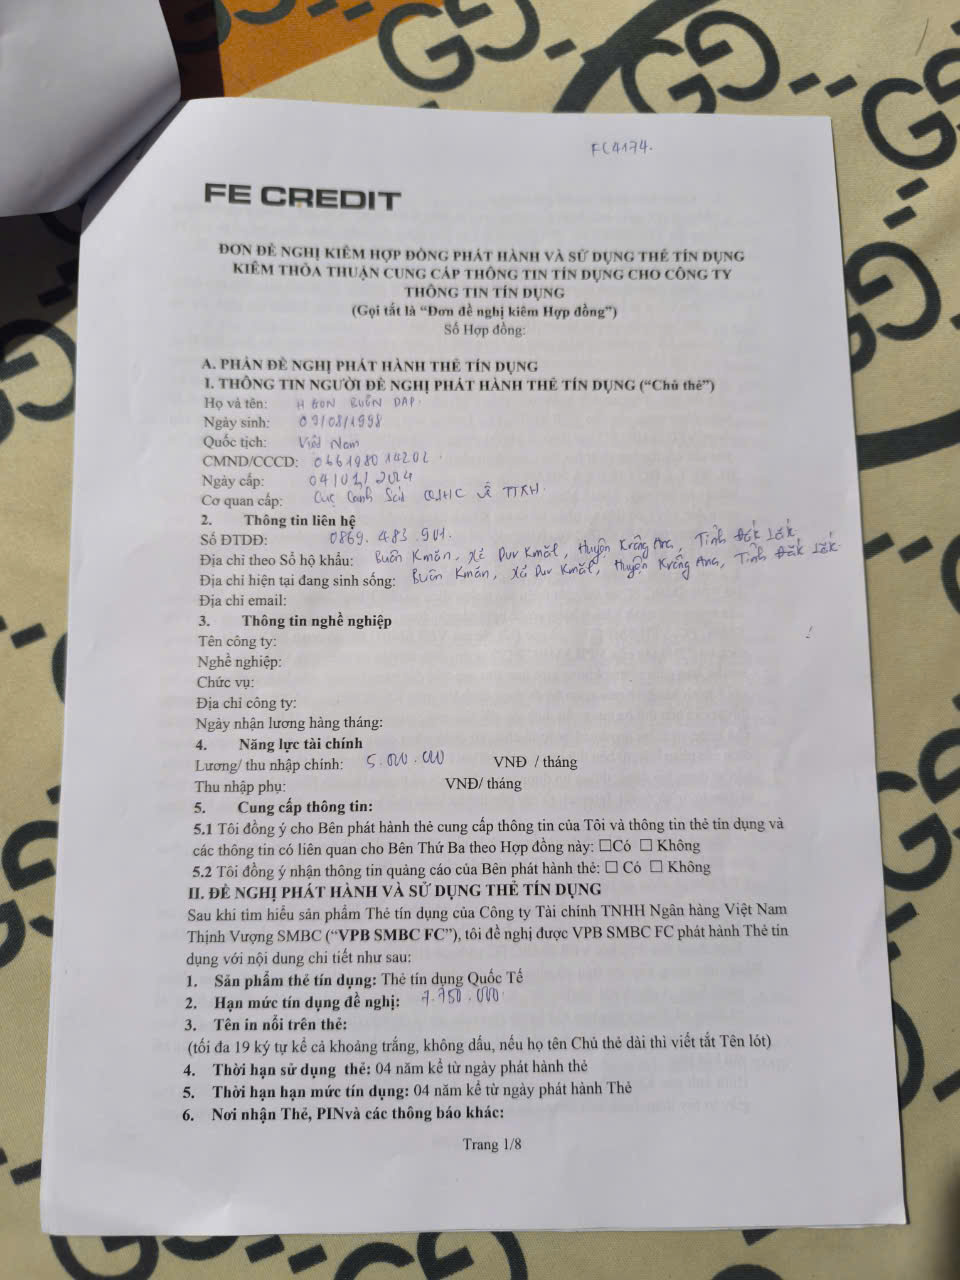 FC4174.
FE CREDIT
ĐƠN ĐỀ NGHỊ KIÊM HỢP ĐỒNG PHÁT HÀNH VÀ SỬ DỤNG THẺ TÍN DỤNG
KIÊM THỎA THUẬN CUNG CẤP THÔNG TIN TÍN DỤNG CHO CÔNG TY
THÔNG TIN TÍN DỤNG
(Gọi tắt là “Đơn đề nghị kiêm Hợp đồng”)
Số Hợp đồng:
A. PHẦN ĐỀ NGHỊ PHÁT HÀNH THẺ TÍN DỤNG
I. THÔNG TIN NGƯỜI ĐỀ NGHỊ PHÁT HÀNH THẺ TÍN DỤNG (“Chủ thẻ”)
Họ và tên: H BON BUÔN DAP.
Ngày sinh: 09/08/1998
Quốc tịch: Việt Nam
CMND/CCCD: 066198014202.
Ngày cấp: 04/01/2024
Cơ quan cấp: Cục Cảnh Sát QLHC về TTXH.
2. Thông tin liên hệ
Số ĐTDĐ: 0869.483.901.
Địa chỉ theo Sổ hộ khẩu: Buôn Kmăn, Xã Dur Kmăl, Huyện Krông Ana, Tỉnh Đắk Lắk.
Địa chỉ hiện tại đang sinh sống: Buôn Kmăn, Xã Dur Kmăl, Huyện Krông Ana, Tỉnh Đắk Lắk.
Địa chỉ email:
3. Thông tin nghề nghiệp
Tên công ty:
Nghề nghiệp:
Chức vụ:
Địa chỉ công ty:
Ngày nhận lương hàng tháng:
4. Năng lực tài chính
Lương/ thu nhập chính: 5.000.000 VNĐ / tháng
Thu nhập phụ: VNĐ/ tháng
5. Cung cấp thông tin:
5.1 Tôi đồng ý cho Bên phát hành thẻ cung cấp thông tin của Tôi và thông tin thẻ tín dụng và
các thông tin có liên quan cho Bên Thứ Ba theo Hợp đồng này: ☐Có ☐ Không
5.2 Tôi đồng ý nhận thông tin quảng cáo của Bên phát hành thẻ: ☐ Có ☐ Không
II. ĐỀ NGHỊ PHÁT HÀNH VÀ SỬ DỤNG THẺ TÍN DỤNG
Sau khi tìm hiểu sản phẩm Thẻ tín dụng của Công ty Tài chính TNHH Ngân hàng Việt Nam
Thịnh Vượng SMBC (“VPB SMBC FC”), tôi đề nghị được VPB SMBC FC phát hành Thẻ tín
dụng với nội dung chi tiết như sau:
1. Sản phẩm thẻ tín dụng: Thẻ tín dụng Quốc Tế
2. Hạn mức tín dụng đề nghị: 7.750.000.
3. Tên in nổi trên thẻ:
(tối đa 19 ký tự kể cả khoảng trắng, không dấu, nếu họ tên Chủ thẻ dài thì viết tắt Tên lót)
4. Thời hạn sử dụng thẻ: 04 năm kể từ ngày phát hành thẻ
5. Thời hạn hạn mức tín dụng: 04 năm kể từ ngày phát hành Thẻ
6. Nơi nhận Thẻ, PINvà các thông báo khác:
Trang 1/8